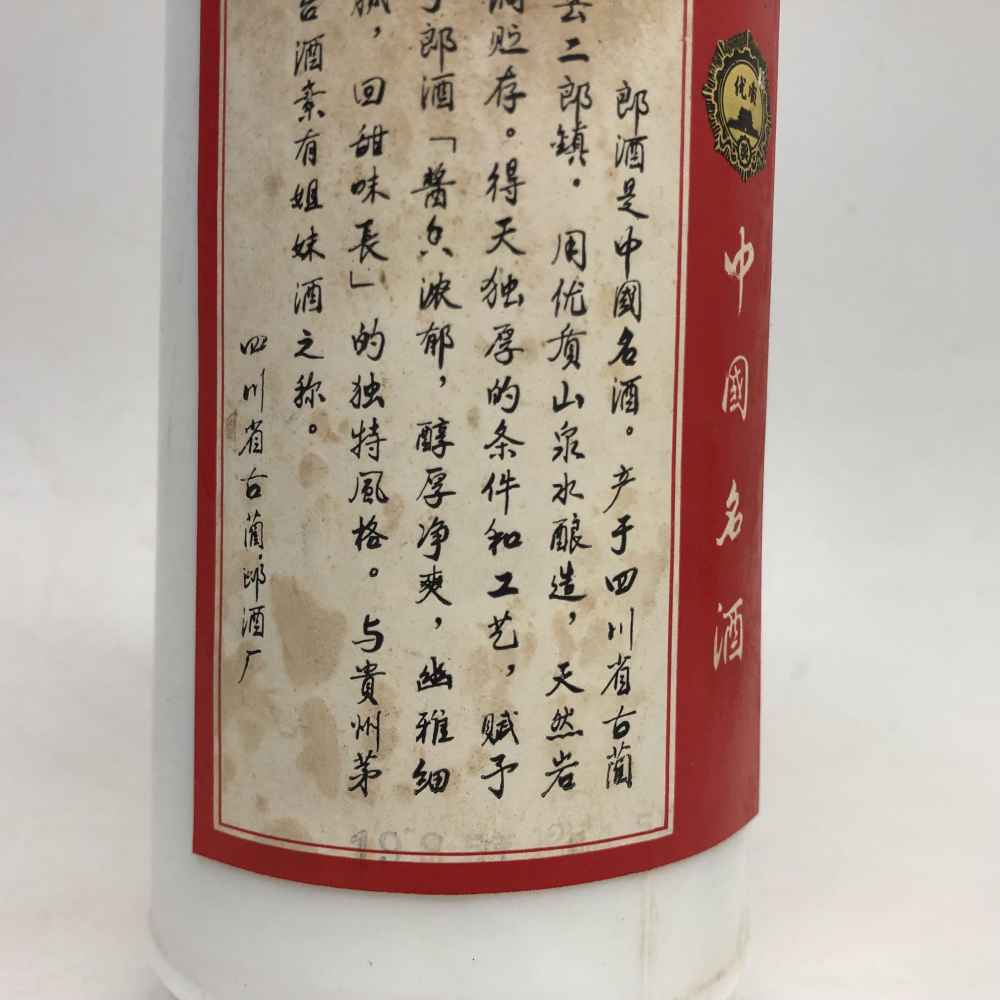 郎酒是中國名酒。产于四川省古蔺
二郎鎮.用优质山泉水酿造,天然岩
贮存。得天独厚的条件和工艺,赋予
郎酒「醬香浓郁,醇厚净爽,幽雅细
,回甜味長」的独特風格。与貴州茅
台酒素有姐妹酒之称。
四川省古蔺郎酒厂
优质
中國名酒